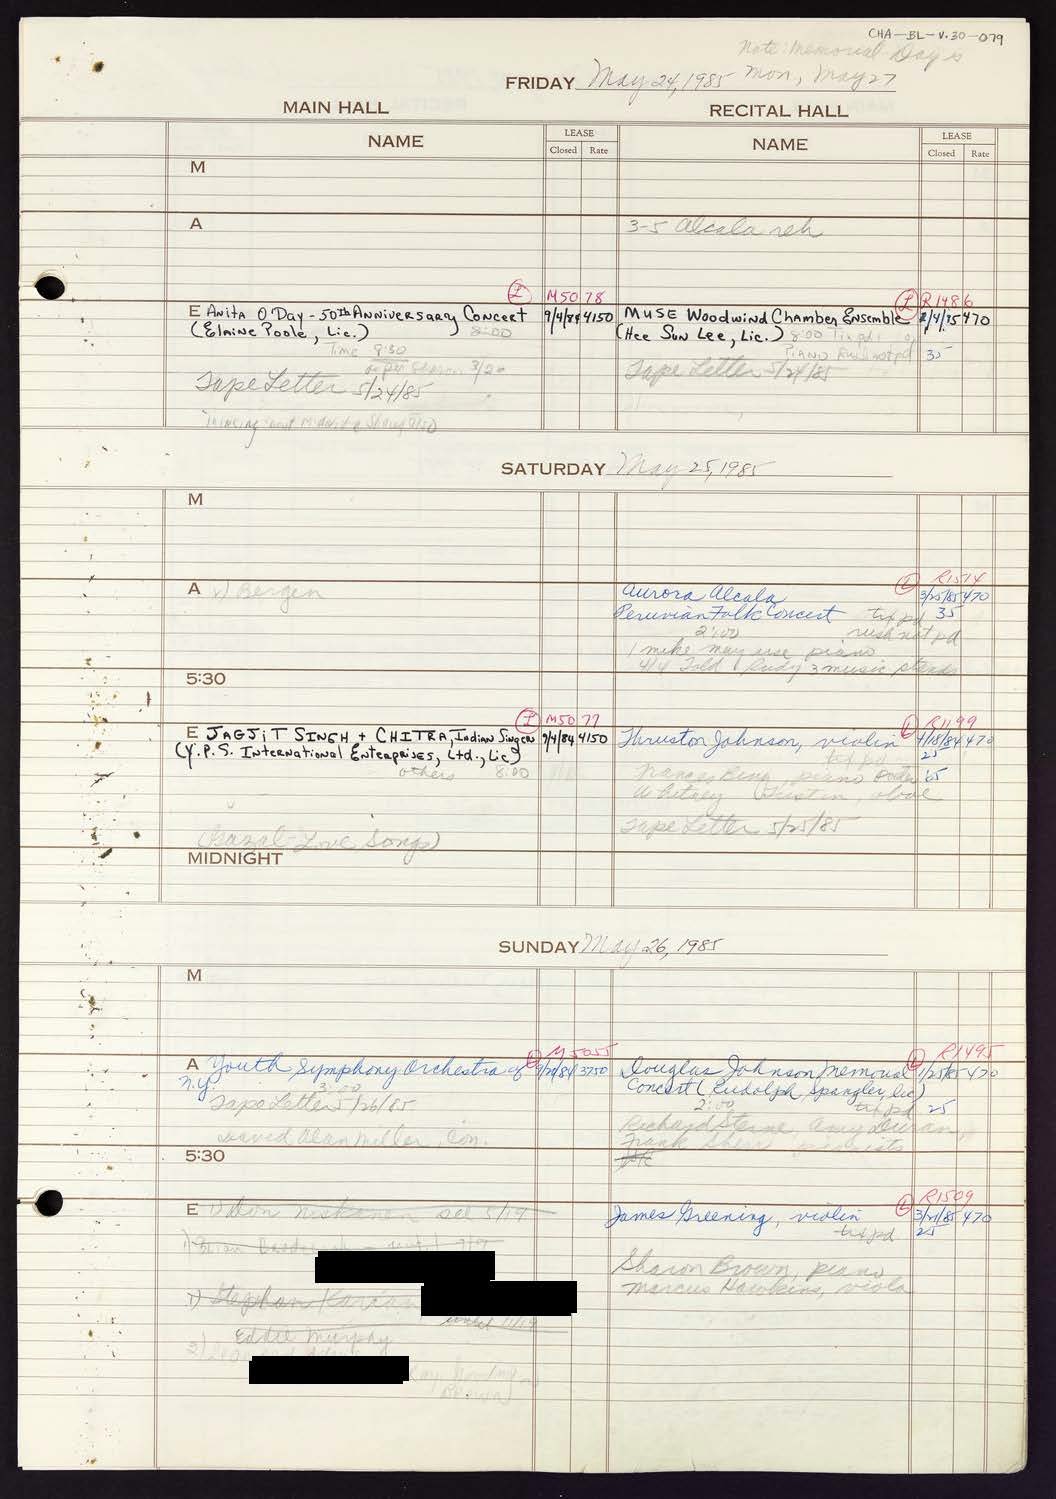 CHA-BL-V.30-079
Note: Memorial Day is
Mon, May 27
FRIDAY May 24, 1985
MAIN HALL
RECITAL HALL
NAME
LEASE
Closed Rate
NAME
LEASE
Closed Rate
M
A
3-5 Alcala reh
L M5078
L R1486
E Anita O'Day - 50th Anniversary Concert 9/4/84 4150
(Elaine Poole, Lic.) 8:00
Time 8:30
3/20
Tape Letter 5/24/85
MUSE Woodwind Chamber Ensemble 2/4/85 470
(Hee Sun Lee, Lic.) 8:00 Tix pd
Piano Rush not pd 35
Tape Letter 5/24/85
SATURDAY May 25, 1985
M
A Bergen
L R1514
Aurora Alcala 3/25/85 470
Peruvian Folk Concert tix pd 35
2:00 rush not pd
1 mike may use piano
4/4 Told Rudy 3 music stands
5:30
L M5077
E JAGJIT SINGH + CHITRA, Indian Singers 9/4/84 4150
(Y.P.S. International Enterprises, Ltd., Lic)
others 8:00
(Gazal-Love Songs)
L R1199
Thruston Johnson, violin 4/18/84 470
tix pd 25
Frances Bing, piano
Whitney Tustin, oboe
Tape Letter 5/25/85
MIDNIGHT
SUNDAY May 26, 1985
M
L M5055
A Youth Symphony Orchestra of 9/20/84 3750
N.Y. 3:00
Tape Letter 5/26/85
David Alan Miller, Con.
L R1495
Douglas Johnson Memorial 1/25/85 470
Concert (Rudolph Spangler, lic)
2:00 tix pd 25
Richard Sterne Amy Duran,
Frank Shea pianists
5:30
E 1) Don Niskanen sel 5/19
1) Brian
1) Stephan
Eddie Murphy
2)
Brown)
L R1509
James Greening, violin 3/21/85 470
tix pd 25
Sharon Brown, piano
Marcus Hawkins, viola